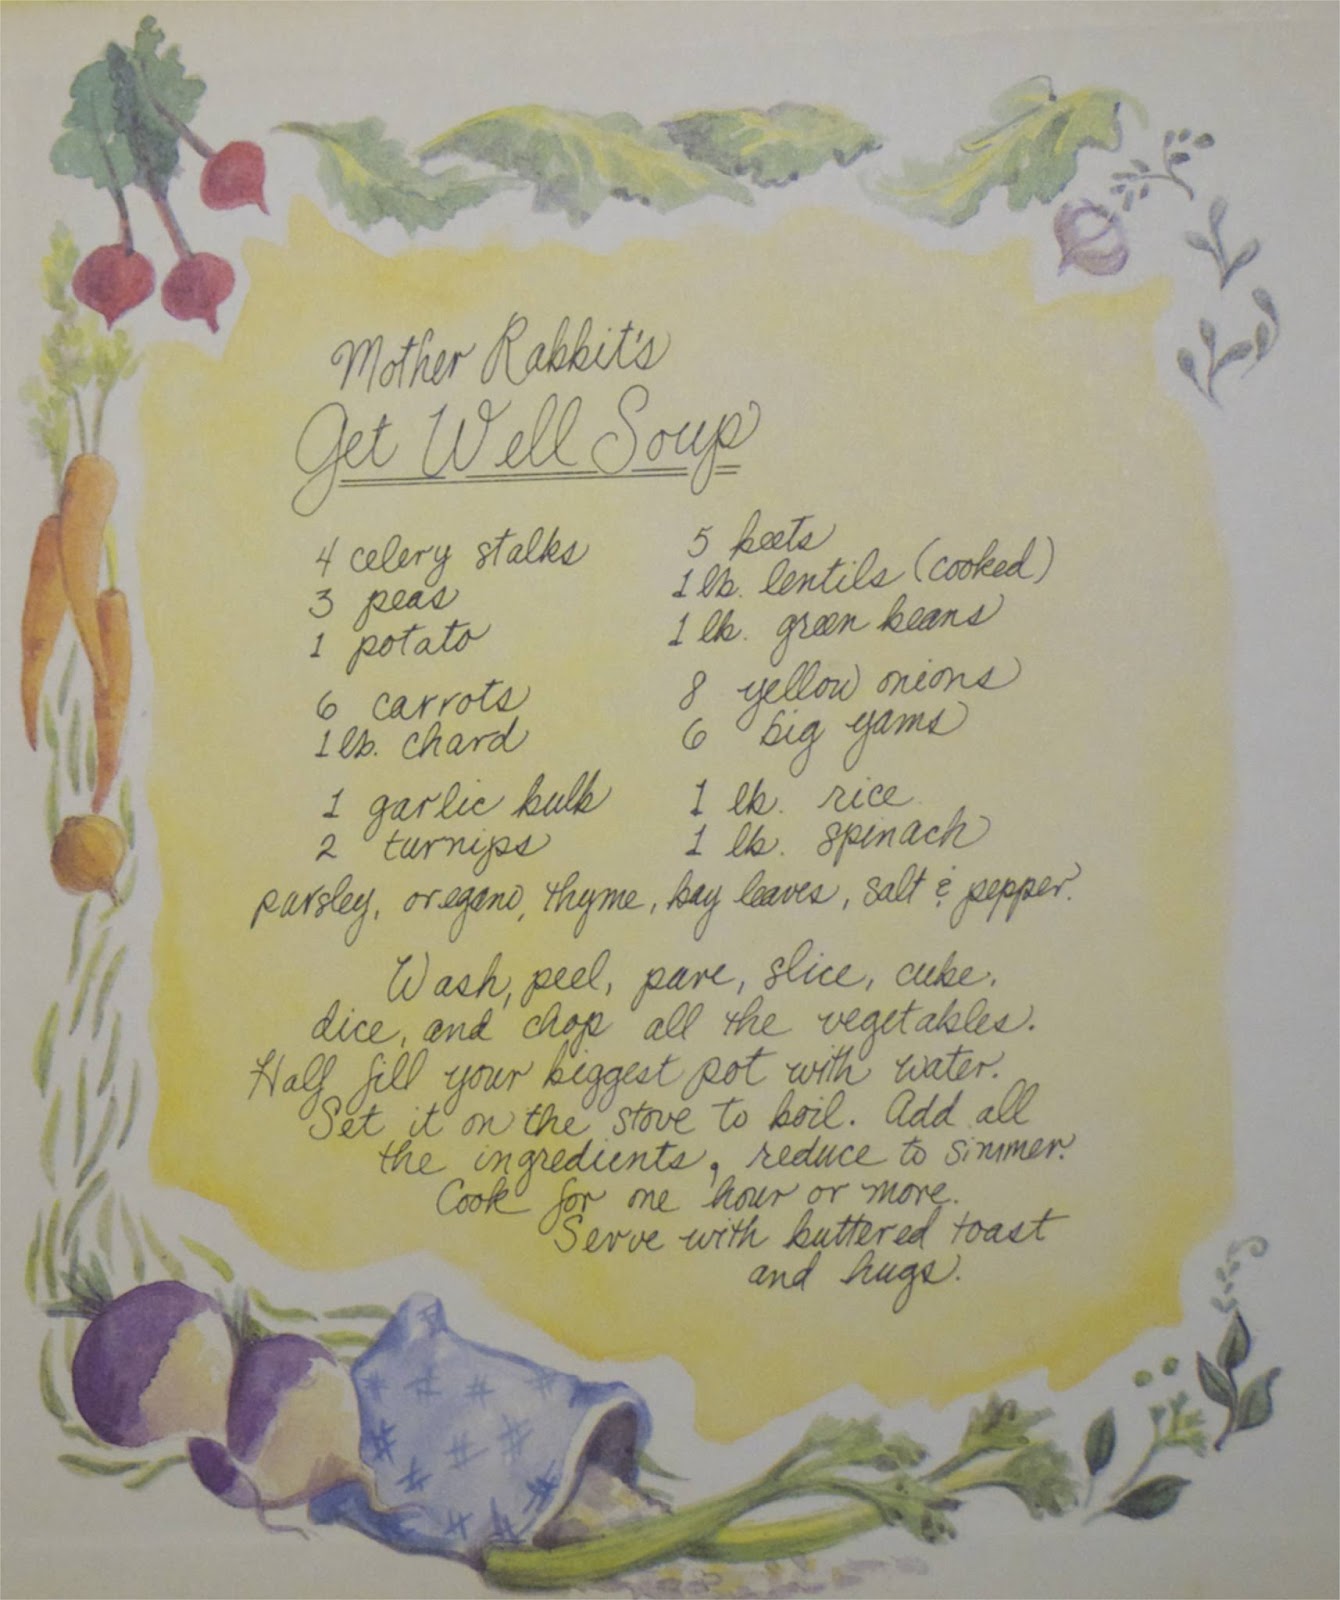 Mother Rabbit's
Get Well Soup
4 celery stalks
3 peas
1 potato
6 carrots
1 lb. chard
1 garlic bulb
2 turnips
5 beets
1 lb. lentils (cooked)
1 lb. green beans
8 yellow onions
6 big yams
1 lb. rice
1 lb. spinach
parsley, oregano, thyme, bay leaves, salt & pepper.
Wash, peel, pare, slice, cube,
dice, and chop all the vegetables.
Half fill your biggest pot with water.
Set it on the stove to boil. Add all
the ingredients, reduce to simmer.
Cook for one hour or more.
Serve with buttered toast
and hugs.